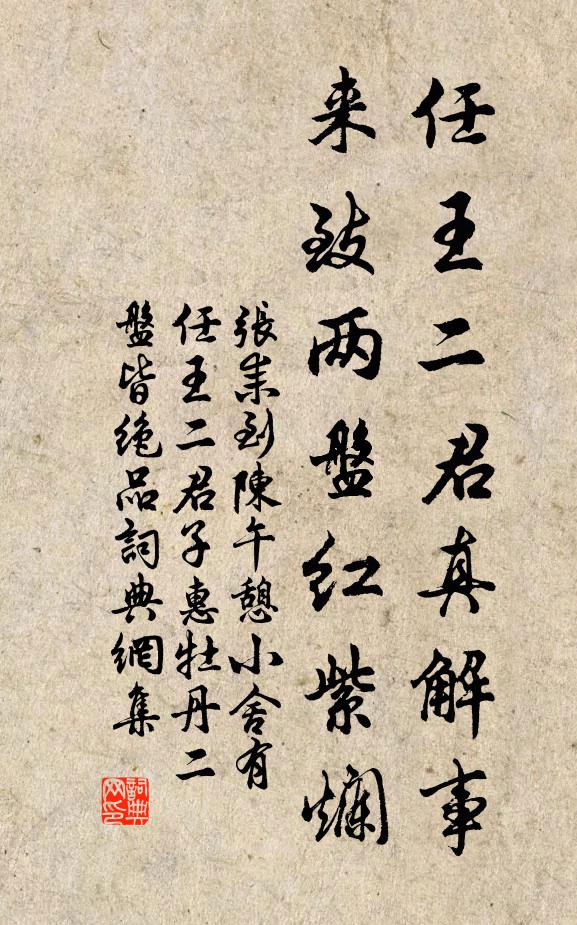 任王二君真解事
来致两盤紅紫爛
張耒到陳午憩小舍有
任王二君子惠牡丹二
盤皆絶品詞典網集
詞典
网印